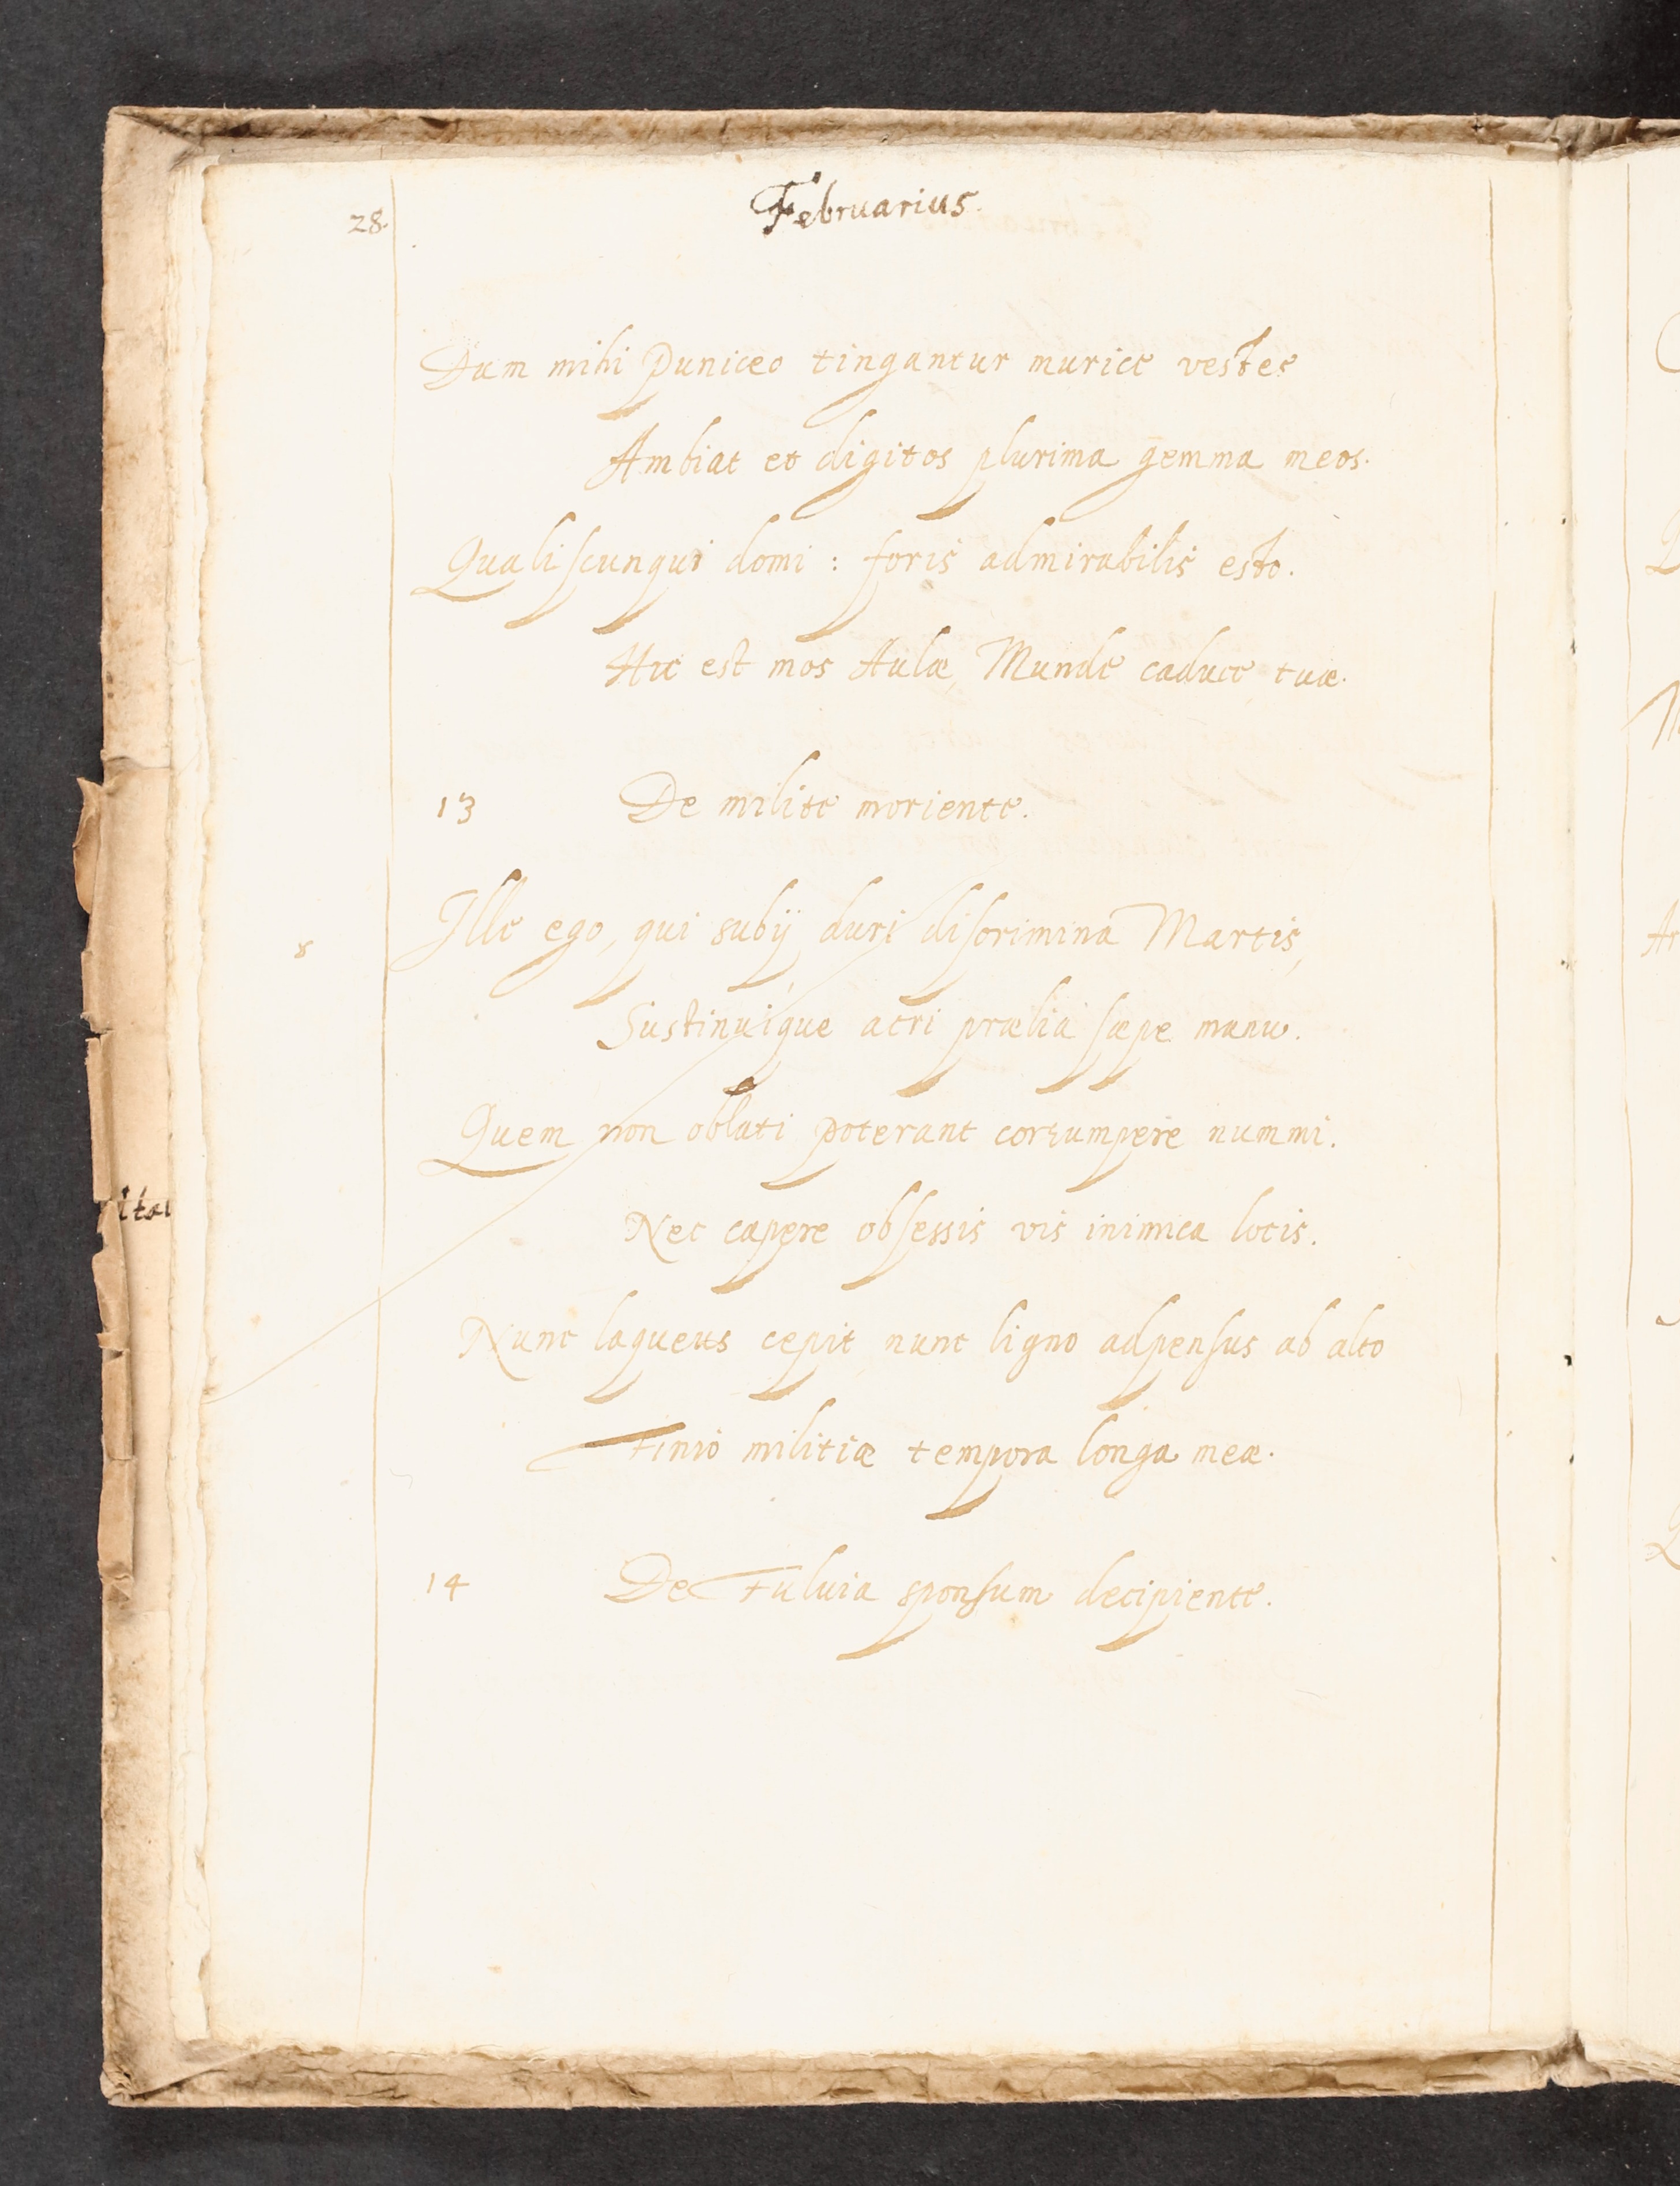 28.
Februarius.
Dum mihi puniceo tingantur murice vestes
Ambiat et digitos plurima gemma meos.
Qualiscunqui domi : foris admirabilis esto.
Hic est mos Aulæ, Munde caduce tuæ.
13 De milite moriente.
8 Ille ego, qui subij duri discrimina Martis,
Sustinuique acri prælia sæpe manu.
Quem non oblati poterant corrumpere nummi.
Nec capere obsessis vis inimica locis.
Nunc laqueus cepit nunc ligno adpensus ab alto
Finio militiæ tempora longa meæ.
14 De Fuluia sponsum decipiente.